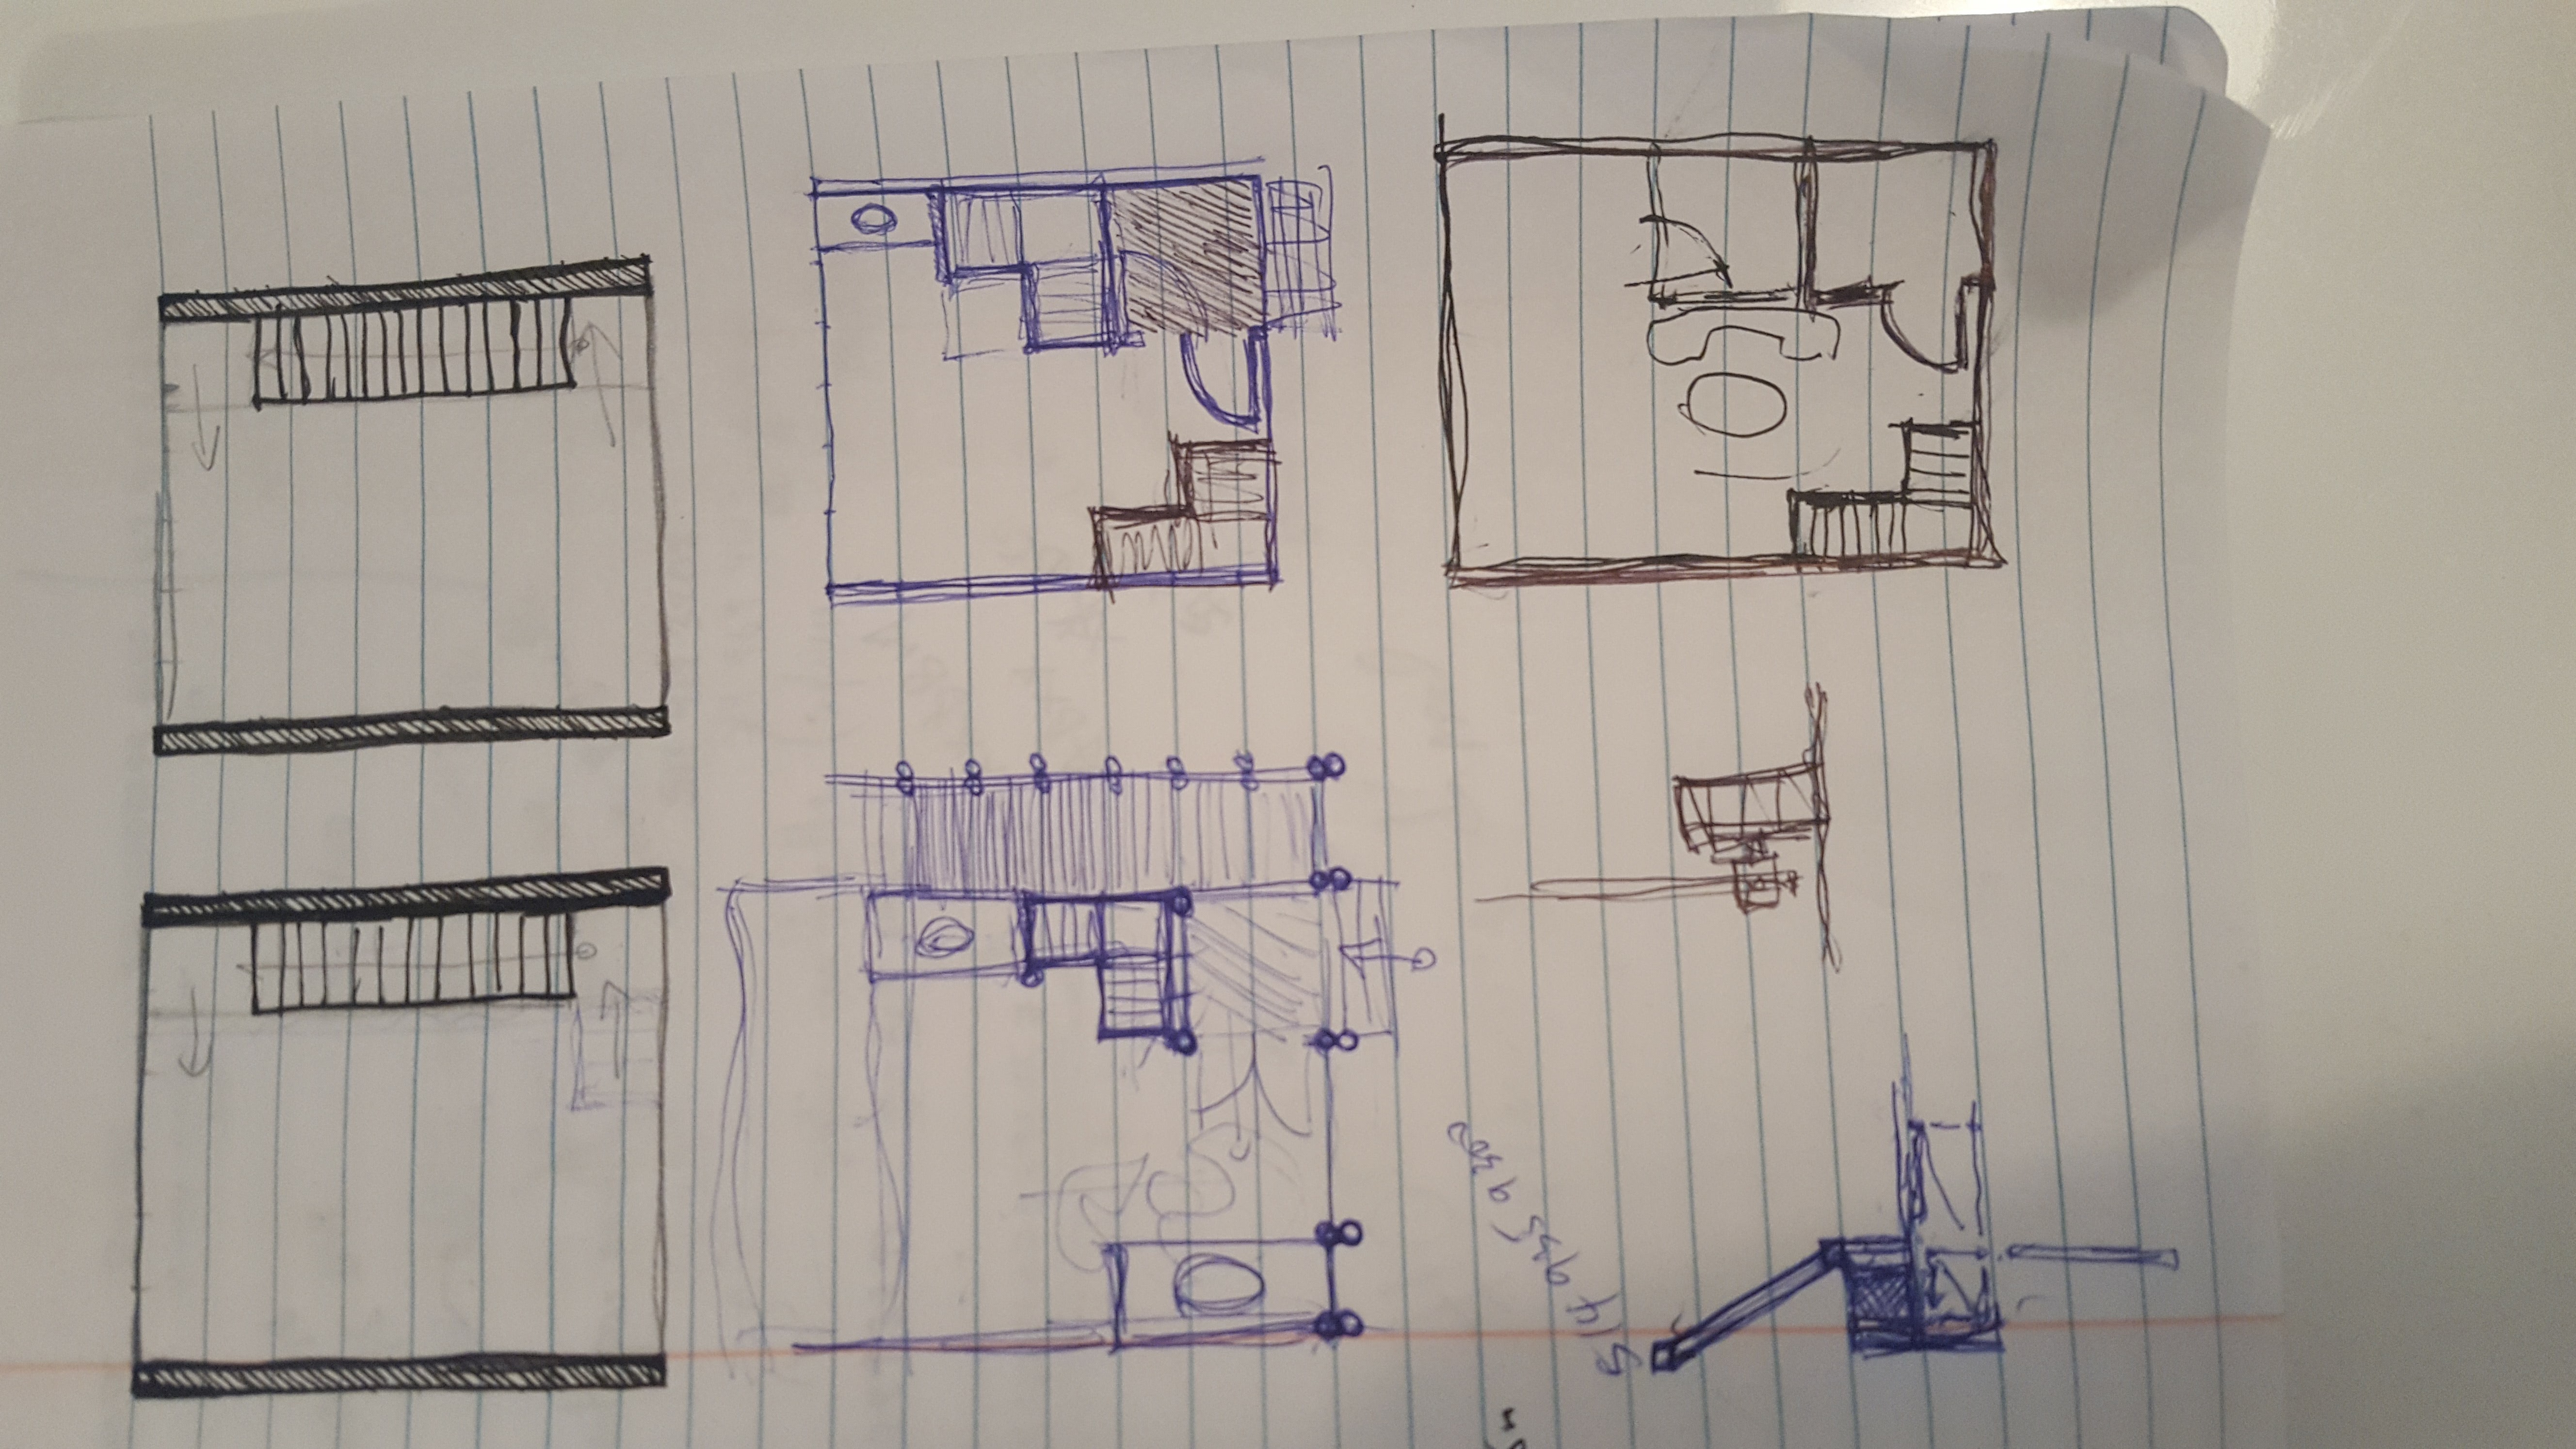 514 935 9300